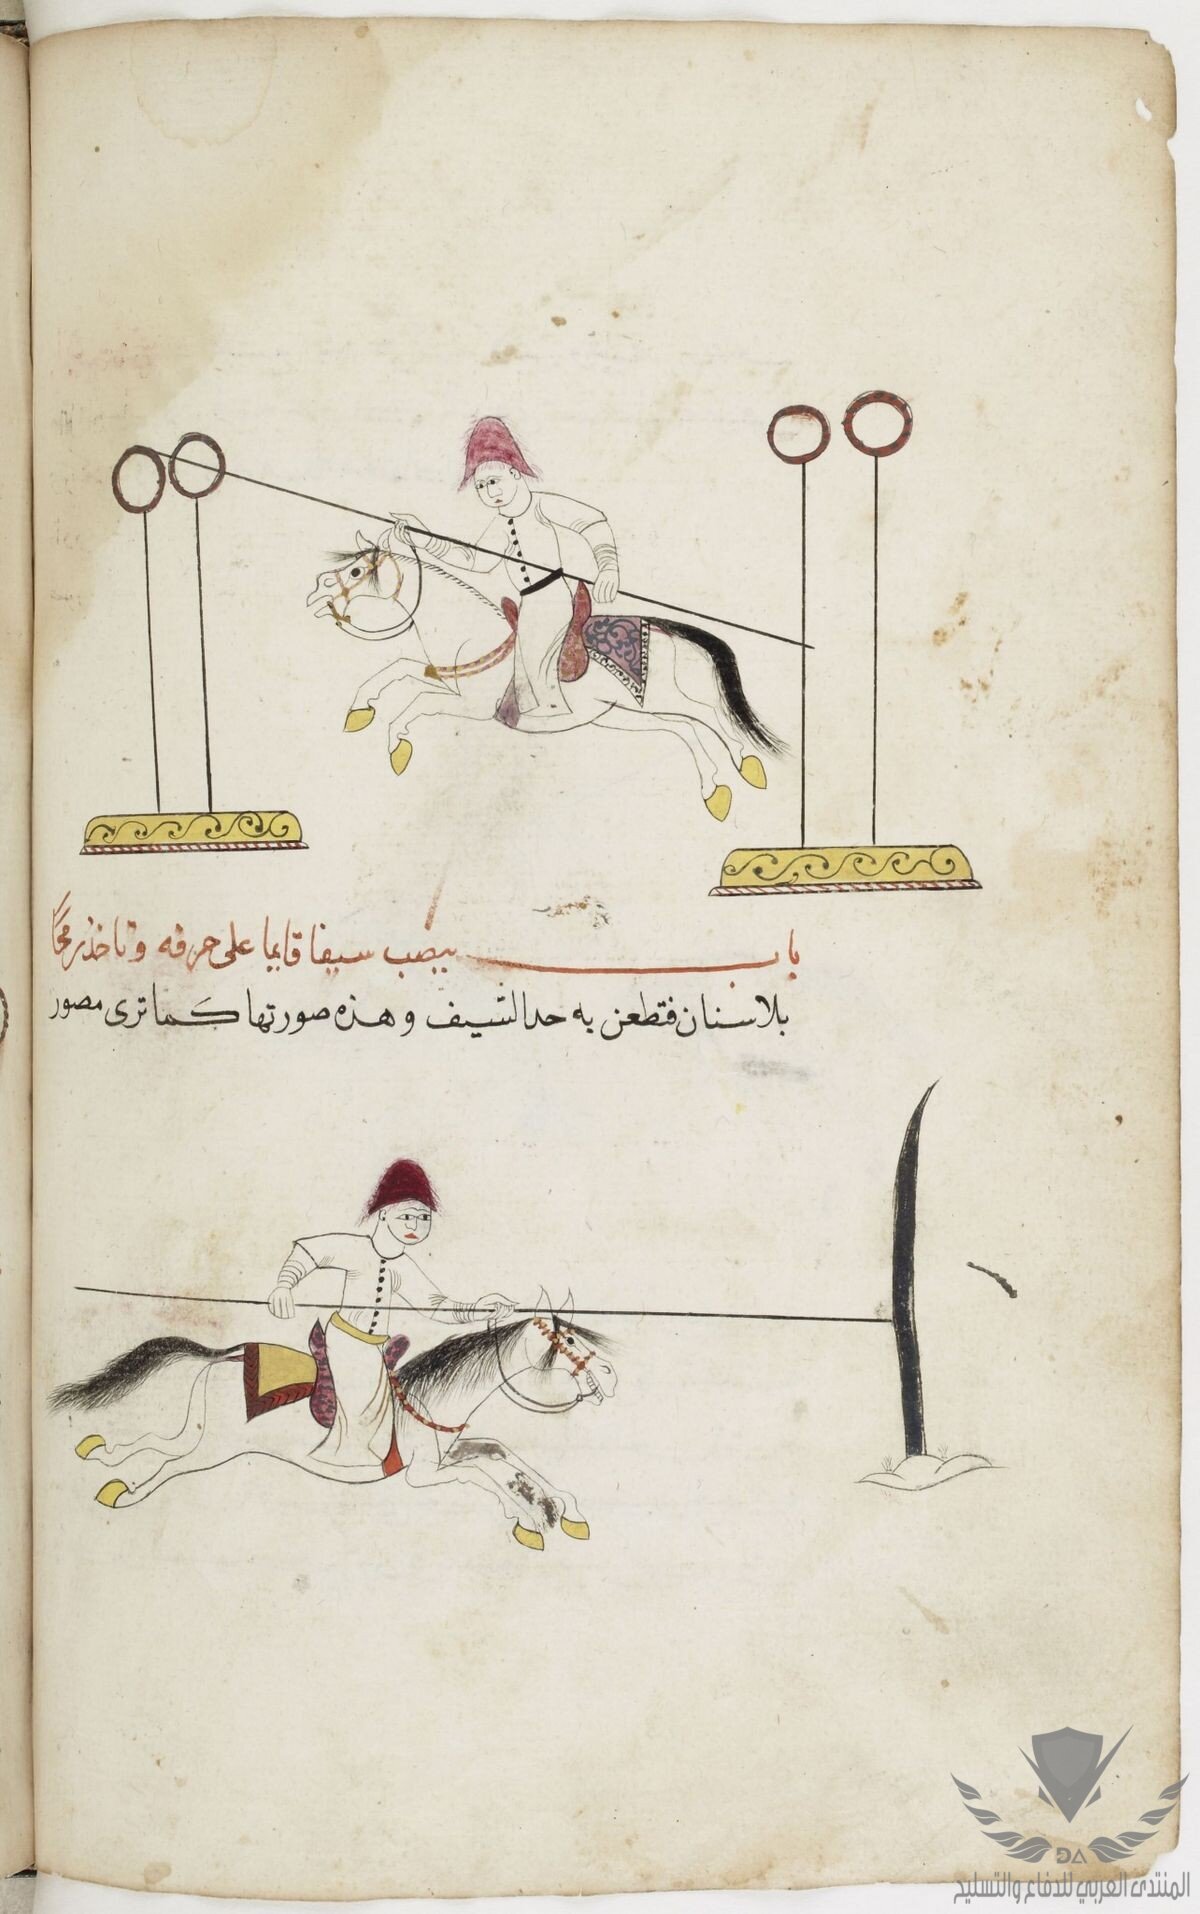 باب ينصب سيفا قايما على حرفه وتاخذ رمحا
بلا سنان فتطعن به حد السيف وهذه صورتها كما ترى مصور
DA
المنتدى العربي للدفاع والتسليح